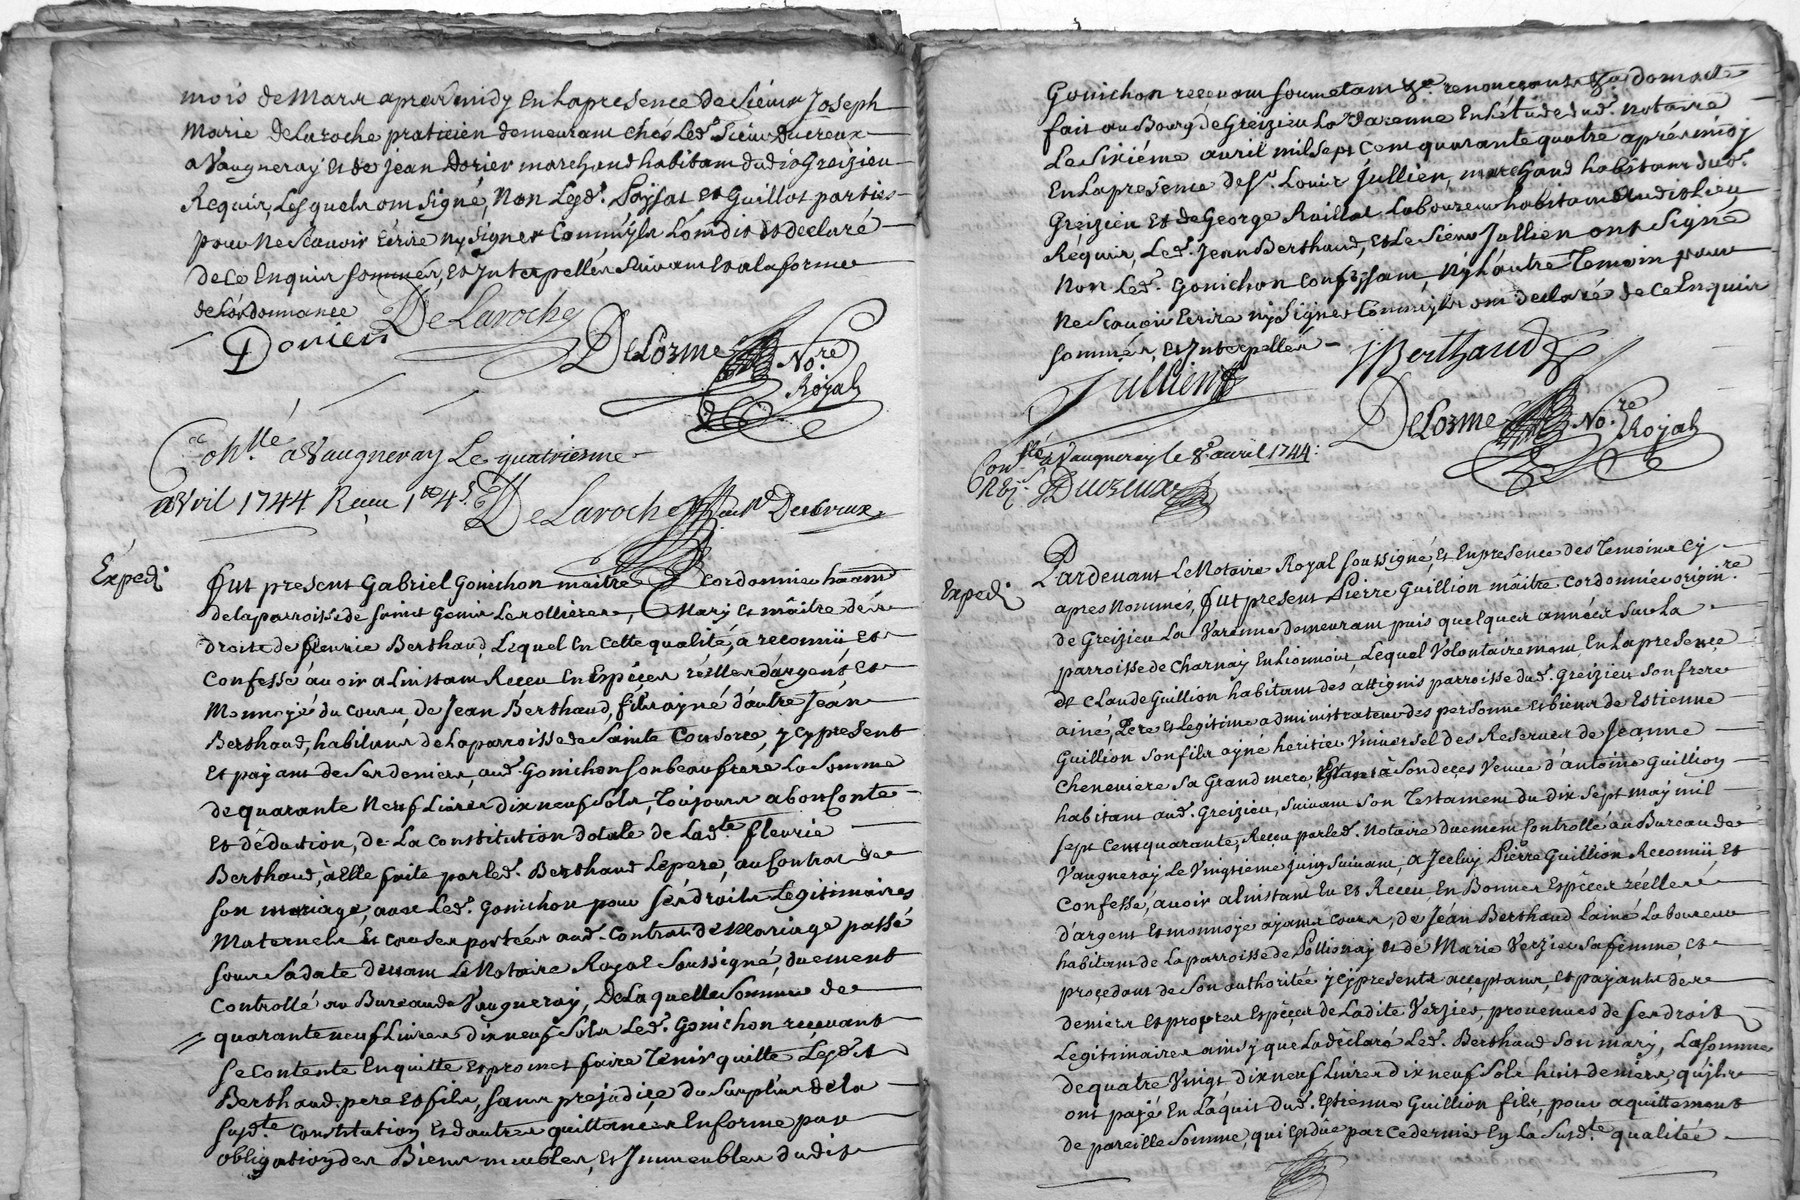 mois de Mars apres midy En La presence de Sieur Joseph
Marie DeLaroche praticien demeurant chés Led. Sieur Ducreux
a Vaugneray et de Jean Dorier marchand habitant dudit Greizieu
Requis, Lesquels ont signé, Non Lesd. Loysat et Guillot parties
pour Ne scavoir Ecrire ny signer Comm'ils L'ont dit et declaré
de ce Enquis sommés, et Interpellés suivant et a la forme
de L'ordonnance DeLaroche
Dorier DeLorme No.re
Royal
Con.llé a Vaugneray Le quatriesme
avril 1744 Reçu DeLaroche Ducreux
Exped.
Fut present Gabriel Gonichon maitre Cordonnie
de la parroisse de saint Genis Lerollieres, Mary et maitre des
droits de fleurie Berthaud, Lequel En cette qualité, a reconnü et
Confessé avoir a Linstant Receu En Espéces réélles d'argent, et
Monnoye du cours, de Jean Berthaud, fils ayné d'autre Jean
Berthaud, habitans de la parroisse de Sainte Consorce, y cy present
et payant de ses deniers, aud. Gonichon son beaufrere La somme
de quarante Neuf Livres dix neuf sols, Toujours a bon Conte
et déduction, de La Constitution dotale de Lad.te fleurie
Berthaud, a Elle faite par led. Berthaud Le pere, au Contrat de
son mariage, avec Led. Gonichon pour ses droits Legitimaires
Maternels et causes portées aud. Contrat de Mariage passé
sous sa date devant Le Notaire Royal soussigné, duement
Controllé au Bureau de Vaugneray, De Laquelle somme de
quarante neuf Livres dix neuf sols Led. Gonichon recevant
se contente En quitte et promet faire Tenir quitte Lesdits
Berthaud pere et fils, sans prejudice du surplus de la
susd.te Constitution et d'autres quittances En forme par
obligation des Biens meubles, et Immeubles dudit
Gonichon recevant soumetant &.a renonceant &.a dont acte
fait au Bourg de Greizieu La Varenne En L'étude dud. Notaire
Le sixiéme avril mil sept Cent quarante quatre aprés midy
En La presence de s.r Louis Jullien, marchand habitant dud.
Greizieu et de George Raillat Laboureur habitant audit Lieu
Réquis, Led. Jean Berthaud, et Le sieur Jullien ont signé
Non Led. Gonichon Confessant, Ny L'autre Temoin pour
Ne scavoir Ecrire ny signer Comm'ils ont declaré de ce Enquis
sommés, et Interpellés JBerthaud
Jullien
DeLorme No.re Royal
Con.llé a Vaugneray le 8e avril 1744:
Ducreux
Exped.
Pardevant Le Notaire Royal soussigné, et En presence des Temoins Cy
apres Nommés, Fut present Pierre Guillion maitre Cordonnier origin.re
de Greizieu La Varenne demeurant puis quelques années sur La
parroisse de Charnay En Lionnois, Lequel Volontairement En La presence
de Claude Guillion habitant des attignis parroisse dud. Greizieu son frere
ainé, Pere et Legitime administrateur des personne et biens de Estienne
Guillion son fils ayné heritier Universel des Reserves de Jeanne
Cheneviere sa Grand mere, Etant à son deces Veuve d'antoine Guillion
habitant aud. Greizieu, suivant son Testament du dix sept may mil
sept Cent quarante, Receu par led. Notaire duement Controllé au Bureau de
Vaugneray Le Vingtieme Juin suivant, a Jceluy Pierre Guillion Reconnü et
Confessé, avoir a linstant Eu et Receu, En Bonnes Espéces réélles
d'argent et monnoye ayant cours, de Jean Berthaud Lainé Laboureur
habitant de La parroisse de Pollionay et de Marie Verzier sa femme, et
procedant de son authorité y cy presents acceptans, et payants des
deniers et propres Espéces de Ladite Verzier, provenues de ses droits
Legitimaires ainsy que La déclaré Led. Berthaud son mary, La somme
de quatre Vingt dix neuf Livres dix neuf sols huit deniers, qu'ils
ont payé En L'aquit dud. Estienne Guillion fils, pour aquittement
de pareille somme, qui est due par Ce dernier En La susd.te qualitée